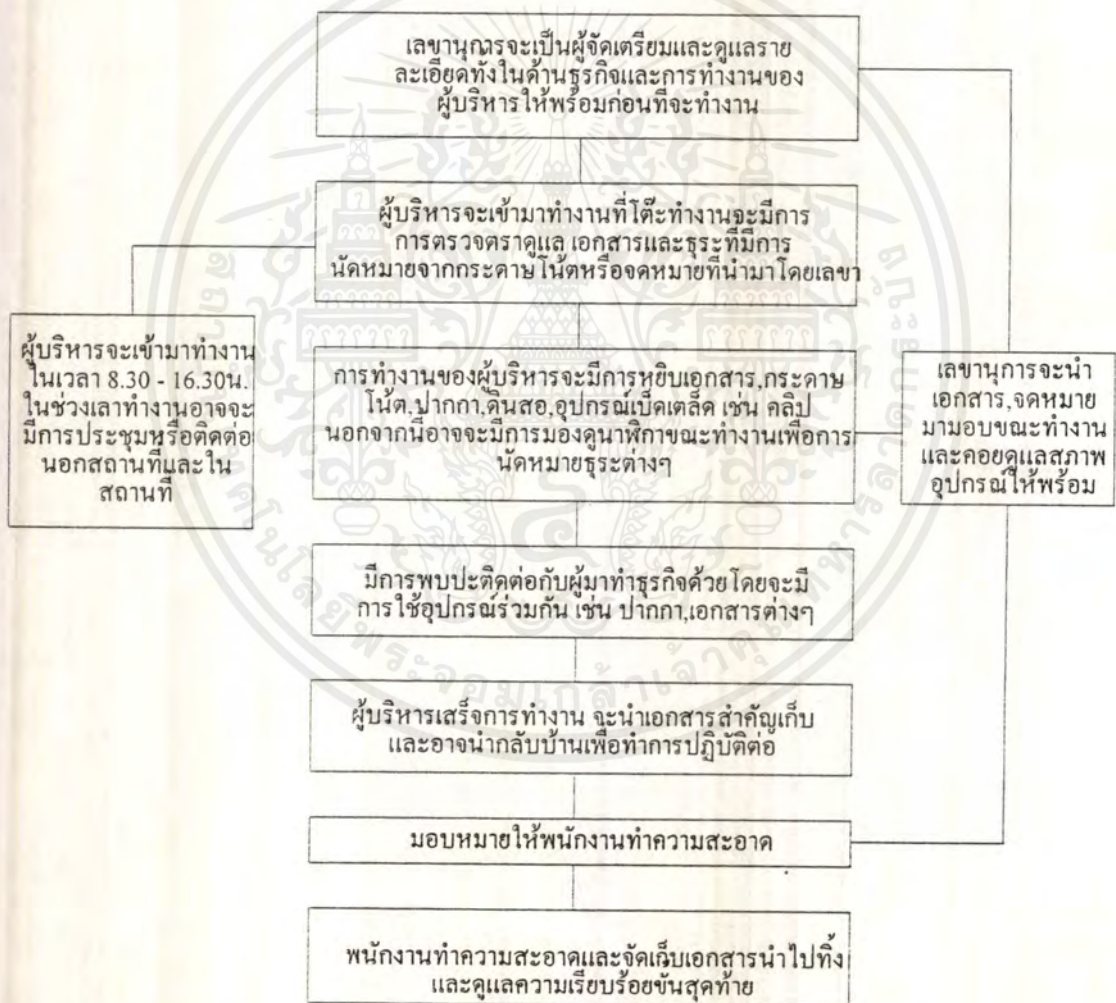 เลขานุการจะเป็นผู้จัดเตรียมและดูแลราย
ละเอียดทั้งในด้านธุรกิจและการทำงานของ
ผู้บริหารให้พร้อมก่อนที่จะทำงาน
ผู้บริหารจะเข้ามาทำงานที่โต๊ะทำงานจะมีการ
การตรวจตราดูแล เอกสารและธุระที่มีการ
นัดหมายจากกระดาษโน้ตหรือจดหมายที่นำมาโดยเลขา
ผู้บริหารจะเข้ามาทำงาน
ในเวลา 8.30 - 16.30น.
ในช่วงเลาทำงานอาจจะ
มีการประชุมหรือติดต่อ
นอกสถานที่และใน
สถานที่
การทำงานของผู้บริหารจะมีการหยิบเอกสาร,กระดาษ
โน้ต,ปากกา,ดินสอ,อุปกรณ์เบ็ดเตล็ด เช่น คลิป
นอกจากนี้อาจจะมีการมองดูนาฬิกาขณะทำงานเพื่อการ
นัดหมายธุระต่างๆ
เลขานุการจะนำ
เอกสาร,จดหมาย
มามอบขณะทำงาน
และคอยดูแลสภาพ
อุปกรณ์ให้พร้อม
มีการพบปะติดต่อกับผู้มาทำธุรกิจด้วยโดยจะมี
การใช้อุปกรณ์ร่วมกัน เช่น ปากกา,เอกสารต่างๆ
ผู้บริหารเสร็จการทำงาน จะนำเอกสารสำคัญเก็บ
และอาจนำกลับบ้านเพื่อทำการปฏิบัติต่อ
มอบหมายให้พนักงานทำความสะอาด
พนักงานทำความสะอาดและจัดเก็บเอกสารนำไปทิ้ง
และดูแลความเรียบร้อยขั้นสุดท้าย